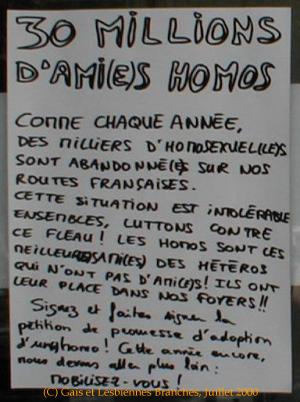 30 MILLIONS
D'AMI(E)S HOMOS
COMME CHAQUE ANNÉE,
DES MILLIERS D'HOMOSEXUEL(LE)S
SONT ABANDONNÉ(E)S SUR NOS
ROUTES FRANÇAISES.
CETTE SITUATION EST INTOLÉRABLE
ENSEMBLES, LUTTONS CONTRE
CE FLEAU ! LES HOMOS SONT LES
MEILLEURS(AMI(ES) DES HÉTÉROS
QUI N'ONT PAS D'AMI(E)S ! ILS ONT
LEUR PLACE DANS NOS FOYERS !!
Signez et faites signer la
pétition de promesse d'adoption
d'un(e) homo ! Cette année encore,
nous devons aller plus loin :
MOBILISEZ-VOUS !
(C) Gais et Lesbiennes Branchés, Juillet 2000